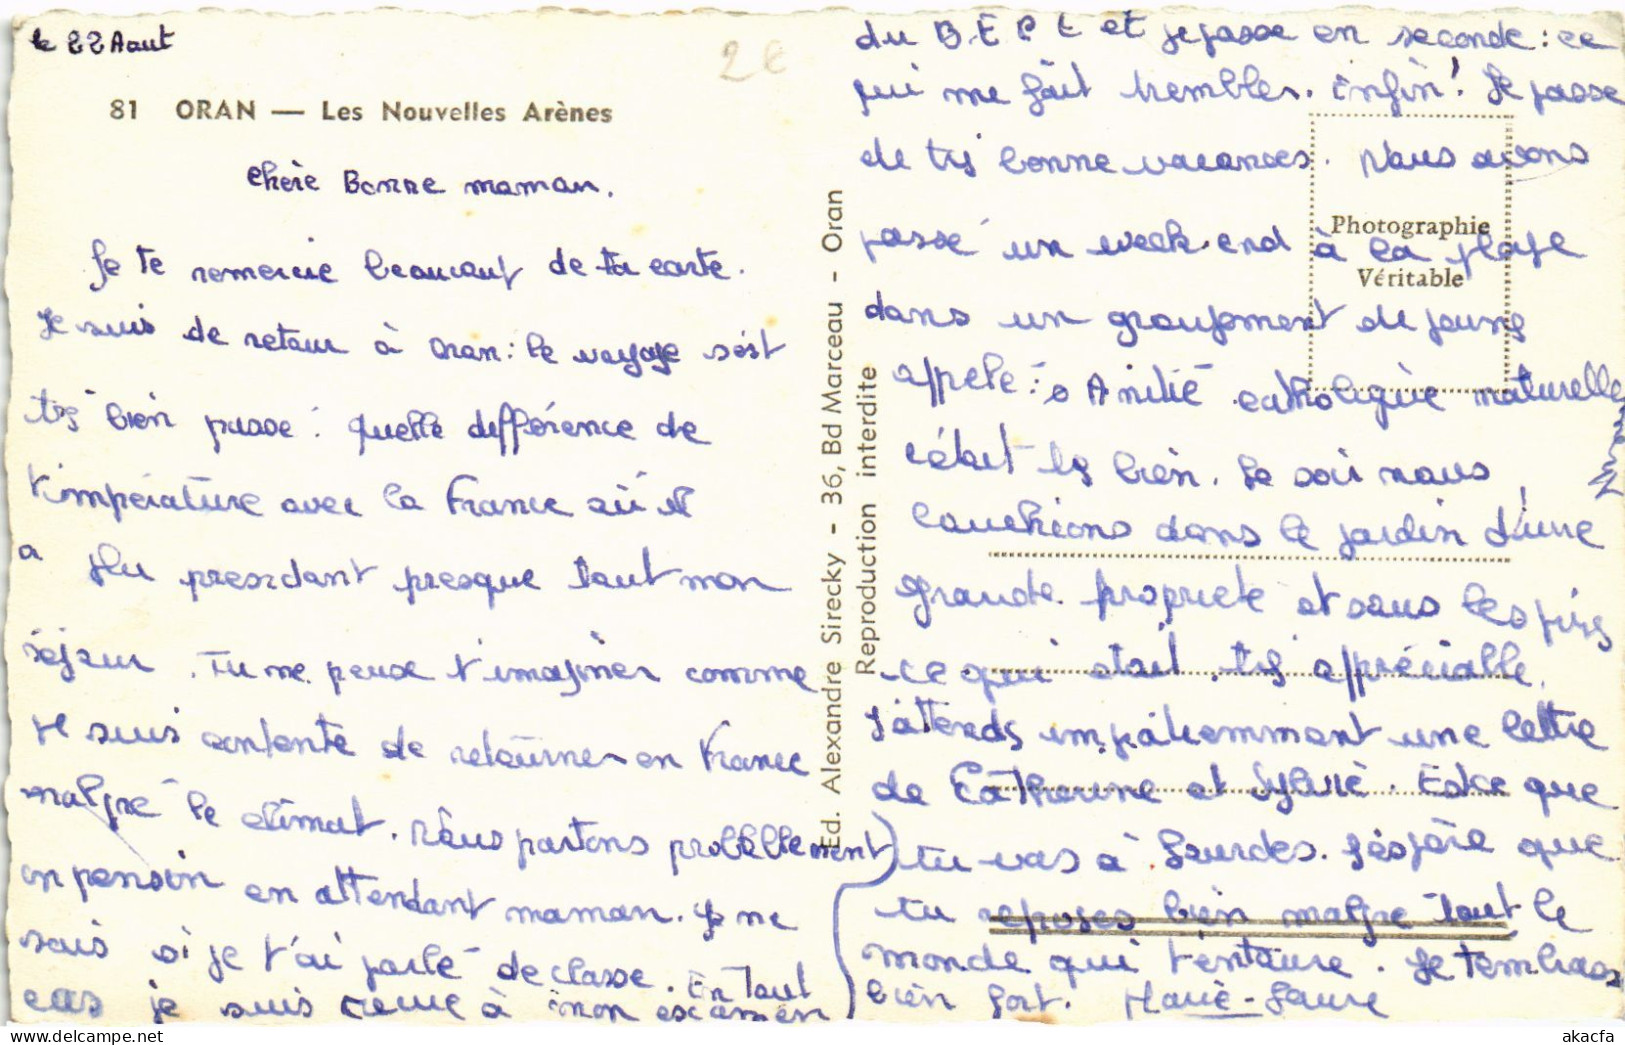 le 22 Aout
2€
81 ORAN — Les Nouvelles Arènes
chère Bonne maman.
Je te remercie beaucoup de ta carte.
Je suis de retour à Oran : le voyage s'est
très bien passé : quelle différence de
température avec la France où il
a plu pendant presque tout mon
séjour. Tu ne peux t'imaginer comme
je suis contente de retourner en France
malgré le climat. Nous partons probablement
en pension en attendant maman. Je ne
sais si je t'ai parlé de classe. En tout
cas je suis reçue à mon examen
du B.E.P.C et je passe en seconde : ce
qui me fait trembler. Enfin! Je passe
de très bonne vacances. Nous avons
passé un week-end à la plage
dans un groupement de jeunes
appelé : Amitié catholique naturelle
c'était très bien. Le soir nous
couchions dans le jardin d'une
grande propriété et sous les pins
ce qui était très appréciable.
J'attends impatiemment une lettre
de Catherine et Sylvie. Est ce que
tu vas à Lourdes. J'espère que
tu reposes bien malgré tout le
monde qui t'entoure. Je t'embrasse
bien fort. Marie-Laure
Photographie
Véritable
Ed. Alexandre Sirecky - 36, Bd Marceau - Oran
Reproduction interdite
akacfa